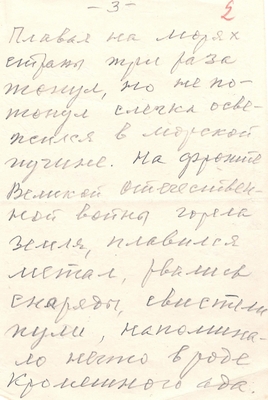 -3-
2
Плавая на морях
страны три раза
тонул, но не по-
тонул слечка осве-
жился в морской
пучине. На фронте
Великой отечествен-
ной войны горела
земля, плавился
метал, рвались
снаряды, свистели
пули, напомина-
ло нечто вроде
кромешного ада.